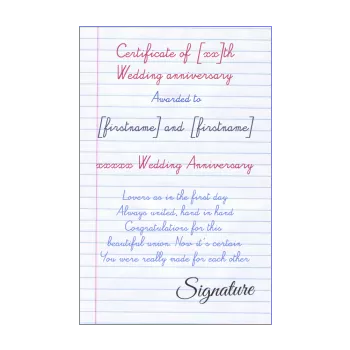 Certificate of [xx]th
Wedding anniversary
Awarded to
[firstname] and [firstname]
xxxxx Wedding Anniversary
Lovers as in the first day
Always united, hand in hand
Congratulations for this
beautiful union. Now it's certain
You were really made for each other
Signature